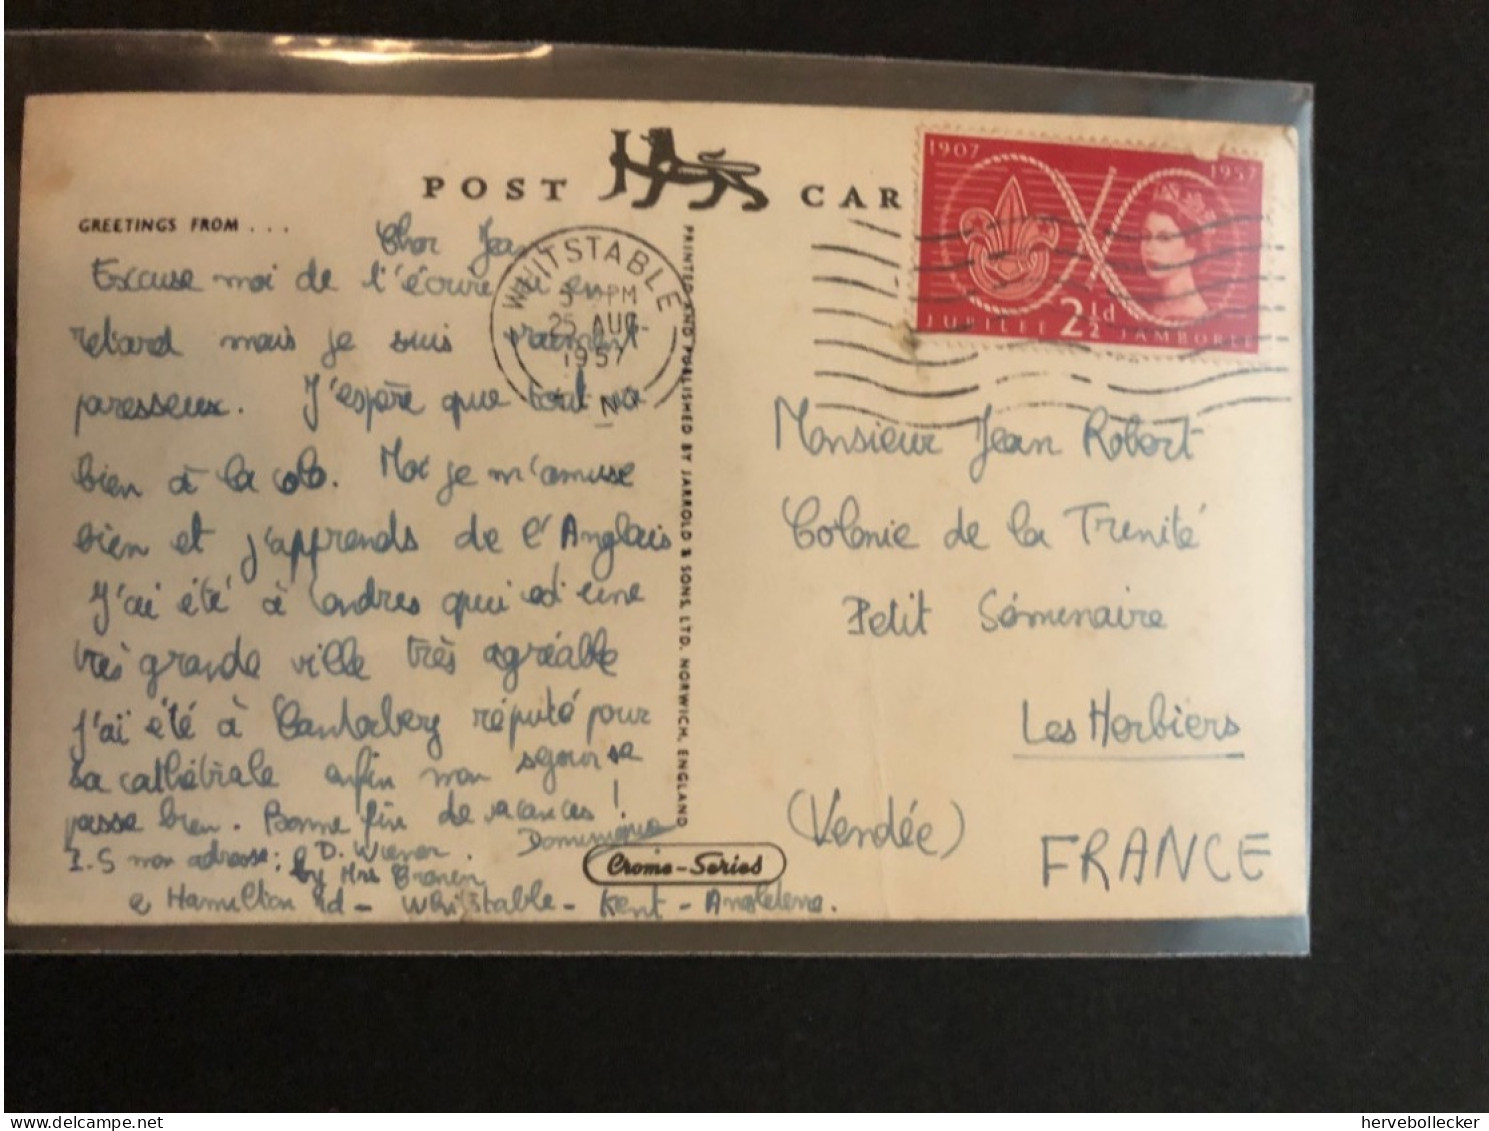 POST CAR
GREETINGS FROM ...
Cher Jean
Excuse moi de t'écrire si en
retard mais je suis vraiment
paresseux. J'espère que tout va
bien à la colo. Moi je m'amuse
bien et j'apprends de l'Anglais
J'ai été à Londres qui est une
très grande ville très agréable
J'ai été à Canterbery réputé pour
sa cathédrale enfin mon sejour se
passe bien. Bonne fin de vacances!
Dominique
mon adresse: D. Wiener.
by Mrs
Hamilton rd - Whitstable - Kent - Angleterre.
PRINTED AND PUBLISHED BY JARROLD & SONS, LTD. NORWICH, ENGLAND
Crome-Series
WHITSTABLE
PM
25 AUG
1957
1907
1957
JUBILEE 2½d JAMBOREE
Monsieur Jean Robert
Colonie de la Trinité
Petit Séminaire
Les Herbiers
(Vendée)
FRANCE
hervebollecker